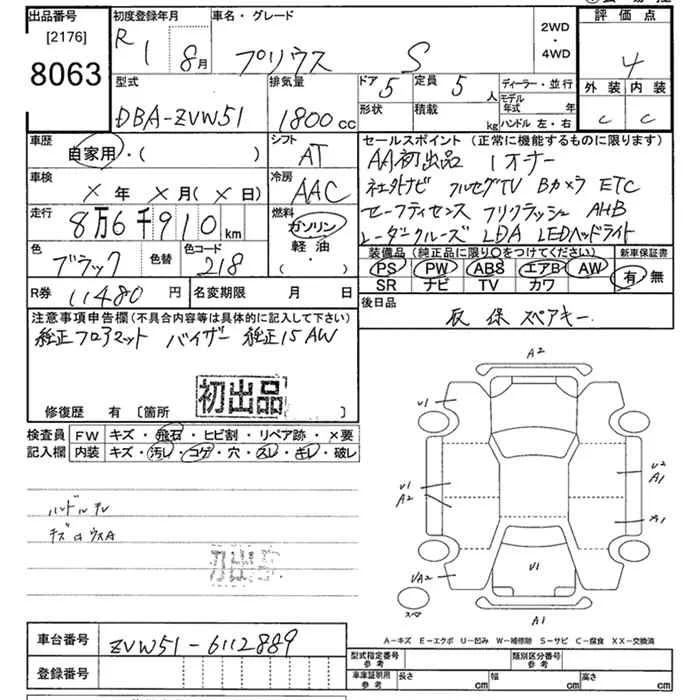 出品番号
[2176]
8063
初度登録年月
R 1 8月
車名・グレード
プリウス S
2WD
・
4WD
評価点
4
型式
DBA-ZVW51
排気量
1800cc
ドア 5
定員 5人
形状
積載 kg
ディーラー・並行
モデル年式 年
ハンドル 左・右
外装 内装
C C
車歴
自家用・( )
シフト
AT
車検
× 年 × 月(× 日)
冷房
AAC
走行
8万6千910km
燃料
ガソリン
軽油
( ・ )
色
ブラック
色替
色コード
218
R券 11480円
名変期限 月 日
セールスポイント(正常に機能するものに限ります)
AA初出品 1オナー
社外ナビ フルセグTV Bカメラ ETC
セーフティセンス プリクラッシュ AHB
レーダクルーズ LDA LEDヘッドライト
装備品(純正品に限り○をつけてください)
PS PW ABS エアB AW
SR ナビ TV カワ
新車保証書
有・無
後日品
取 保 スペアキー
注意事項申告欄(不具合内容等は具体的に記入して下さい)
純正フロアマット バイザー 純正15AW
初出品
修復歴 有 [箇所 ]
検査員記入欄
FW キズ・飛石・ヒビ割・リペア跡・×要
内装 キズ・汚レ・コゲ・穴・スレ・キレ・破レ
キズ ウスA
初出品
A2
U1
U1
A2
U2
A1
A1
U1
UA2
スペア
A1
A-キズ E-エクボ U-凹み W-補修跡 S-サビ C-腐食 XX-交換済
車台番号
ZVW51-6112889
登録番号
型式指定番号
参考
類別区分番号
参考
車庫証明用
参考
長さ cm 幅 cm 高さ cm